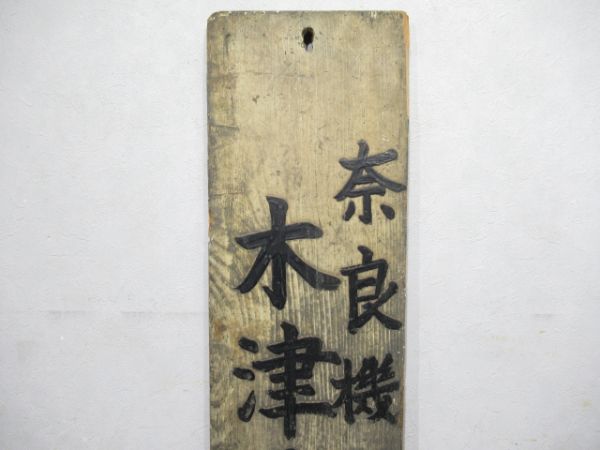 奈良機
木津